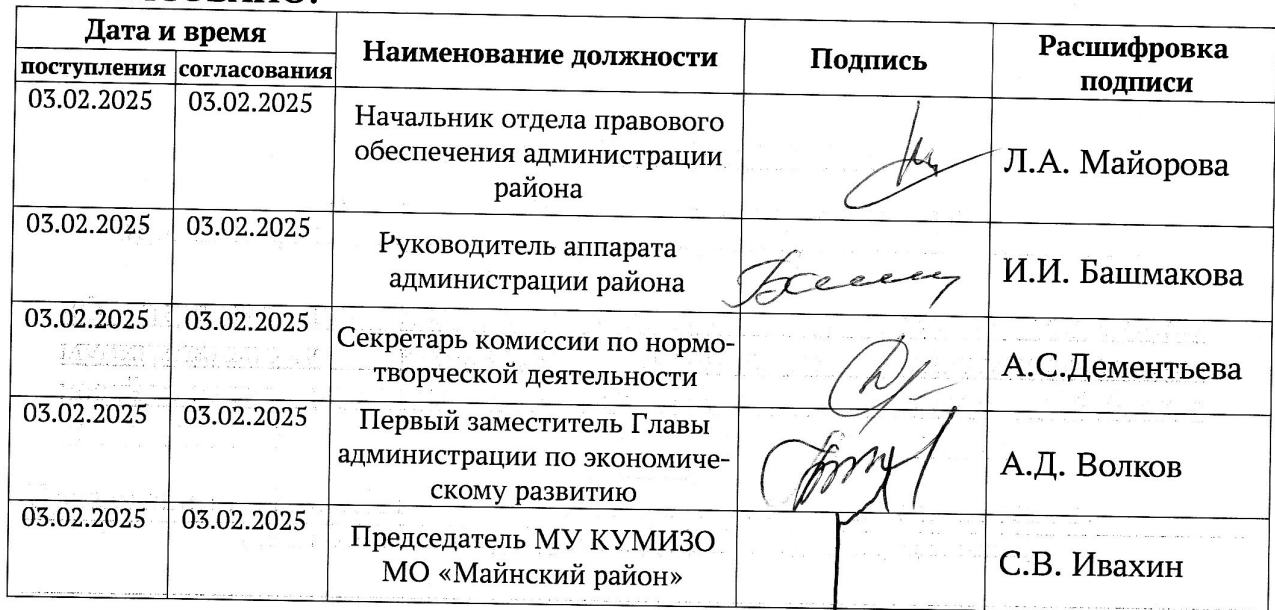 Дата и время
Наименование должности
Подпись
Расшифровка
подписи
поступления
согласования
03.02.2025
03.02.2025
Начальник отдела правового
обеспечения администрации
района
Л.А. Майорова
03.02.2025
03.02.2025
Руководитель аппарата
администрации района
И.И. Башмакова
03.02.2025
03.02.2025
Секретарь комиссии по нормо-
творческой деятельности
А.С.Дементьева
03.02.2025
03.02.2025
Первый заместитель Главы
администрации по экономиче-
скому развитию
А.Д. Волков
03.02.2025
03.02.2025
Председатель МУ КУМИЗО
МО «Майнский район»
С.В. Ивахин